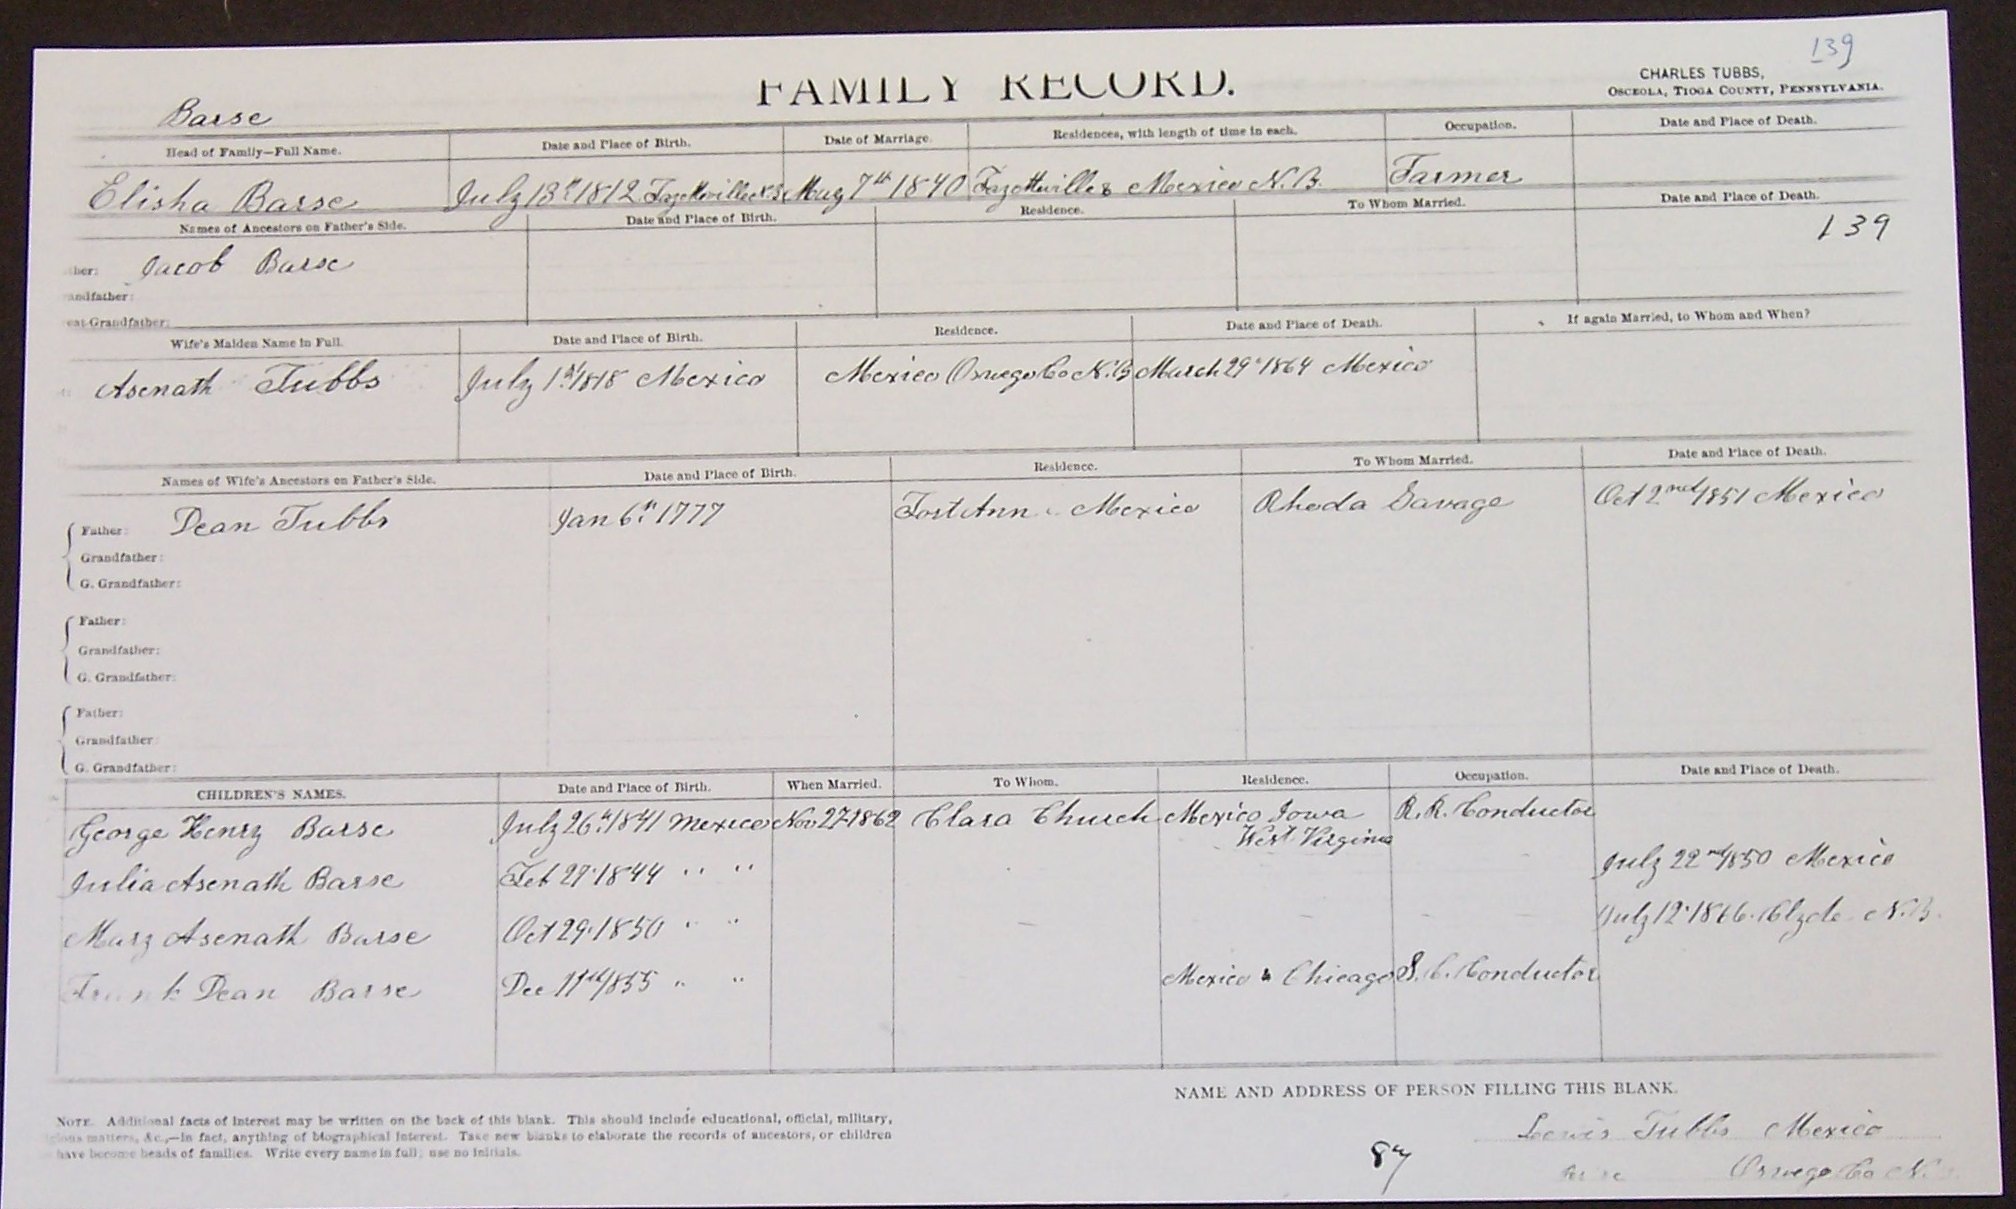 139
FAMILY RECORD.
CHARLES TUBBS,
OSCEOLA, TIOGA COUNTY, PENNSYLVANIA.
Barse
Head of Family—Full Name. Date and Place of Birth. Date of Marriage. Residences, with length of time in each. Occupation. Date and Place of Death.
Elisha Barse July 13th 1812 Fayetteville N.Y. May 7th 1840 Fayetteville & Mexico N.Y. Farmer
Names of Ancestors on Father's Side. Date and Place of Birth. Residence. To Whom Married. Date and Place of Death.
139
ther: Jacob Barse
andfather:
eat-Grandfather:
Wife's Maiden Name in Full. Date and Place of Birth. Residence. Date and Place of Death. If again Married, to Whom and When?
Asenath Tubbs July 1st 1818 Mexico Mexico Oswego Co N.Y March 29th 1864 Mexico
Names of Wife's Ancestors on Father's Side. Date and Place of Birth. Residence. To Whom Married. Date and Place of Death.
Father: Dean Tubbs Jan 6th 1777 Fort Ann Mexico Rhoda Savage Oct 2nd 1851 Mexico
Grandfather:
G. Grandfather:
Father:
Grandfather:
G. Grandfather:
Father:
Grandfather
G. Grandfather:
CHILDREN'S NAMES. Date and Place of Birth. When Married. To Whom. Residence. Occupation. Date and Place of Death.
George Henry Barse July 26th 1841 Mexico Nov 27-1862 Clara Church Mexico Iowa R.R. Conductor
West Virginia
Julia Asenath Barse Feb 27-1844 " " July 22nd 1850 Mexico
Mary Asenath Barse Oct 29-1850 " " July 12-1866. Clyde N.Y.
Frank Dean Barse Dec 11th 1855 " " Mexico & Chicago S.C. Conductor
NAME AND ADDRESS OF PERSON FILLING THIS BLANK.
NOTE. Additional facts of interest may be written on the back of this blank. This should include educational, official, military,
gious matters, &c.,—in fact, anything of biographical interest. Take new blanks to elaborate the records of ancestors, or children
have become heads of families. Write every name in full; use no initials.
Lewis Tubbs Mexico
Oswego Co N.